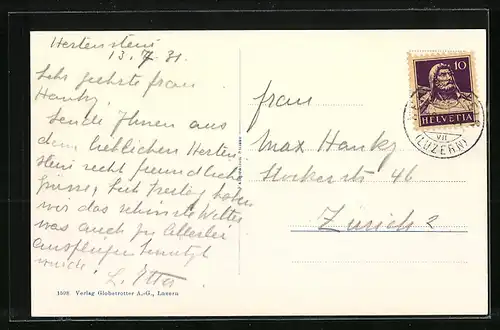 Hertenstein
13.7.31.
Sehr geehrte Frau
Hanky,
Sende Ihnen aus
dem lieblichen Herten
stein recht freundliche
Grüsse, Seit Freitag haben
wir das schönste Wetter
was auch zu allerlei
Ausflügen benutzt
wurde.
L. Etter
Frau
Max Hanky
Stockerstr 46
Zürich 2
10
HELVETIA
VII
(LUZERN)
1598 Verlag Globetrotter A.-G., Luzern